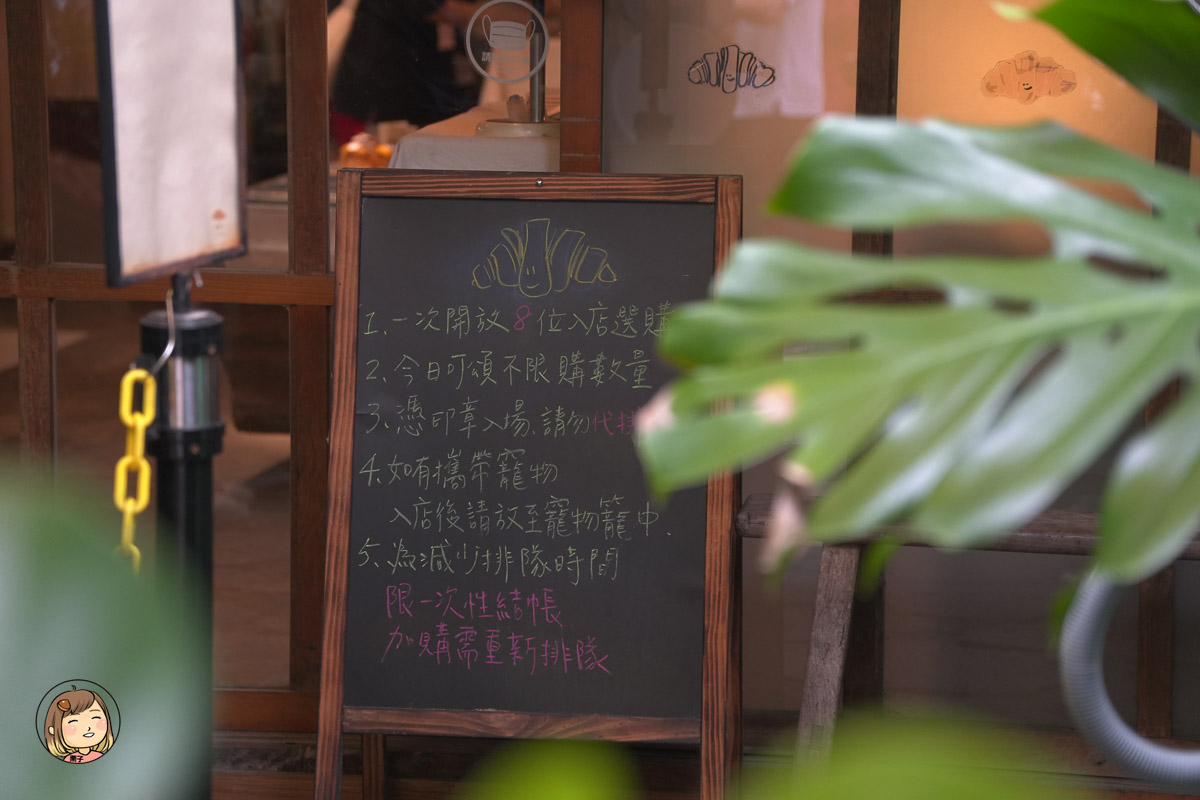 1. 一次開放 8 位入店選購
2. 今日可頌不限購數量
3. 憑印章入場.請勿代排
4. 如有攜帶寵物
入店後請放至寵物籠中.
5. 為減少排隊時間
限一次性結帳
加購需重新排隊